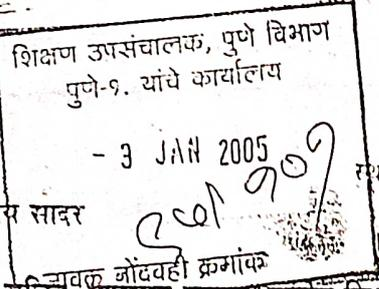 शिक्षण उपसंचालक, पुणे विभाग
पुणे-१. यांचे कार्यालय
- 3 JAN 2005
य सादर
आवक नोंदवही क्रमांक